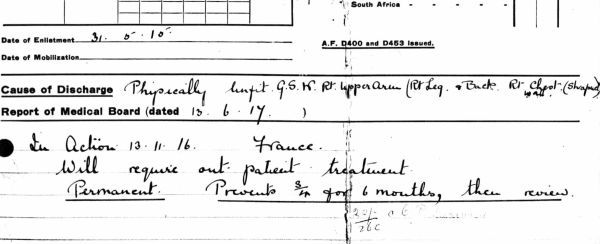 South Africa -
Date of Enlistment 31. 5. 15.
A.F. D400 and D453 issued.
Date of Mobilization
Cause of Discharge Physically Unfit G.S.W. Rt. Upper Arm (Rt Leg. & Back. Rt Chest wall (Shrapnel)
Report of Medical Board (dated 13. 6. 17. )
In Action 13.11.16. France.
Will require out patient treatment.
Permanent. Prevents 3/4 for 6 months, then review.